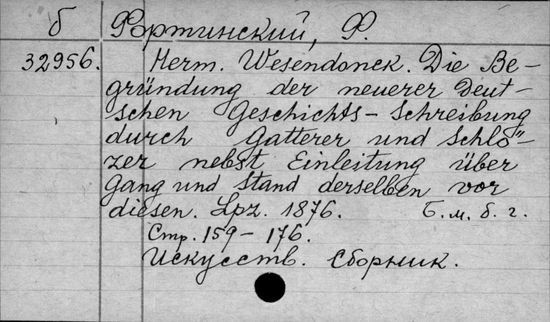 б Фортинский, Ф.
32956. Herm. Wesendonck. Die Be-
gründung der neuerer Deut-
schen Geschichts-Schreibung
durch Gatterer und Schlö-
zer nebst Einleitung über
Gang und Stand derselben vor
diesen. Lpz. 1876. Б. м. б. г.
Стр. 159-176.
Искусств. Сборник.